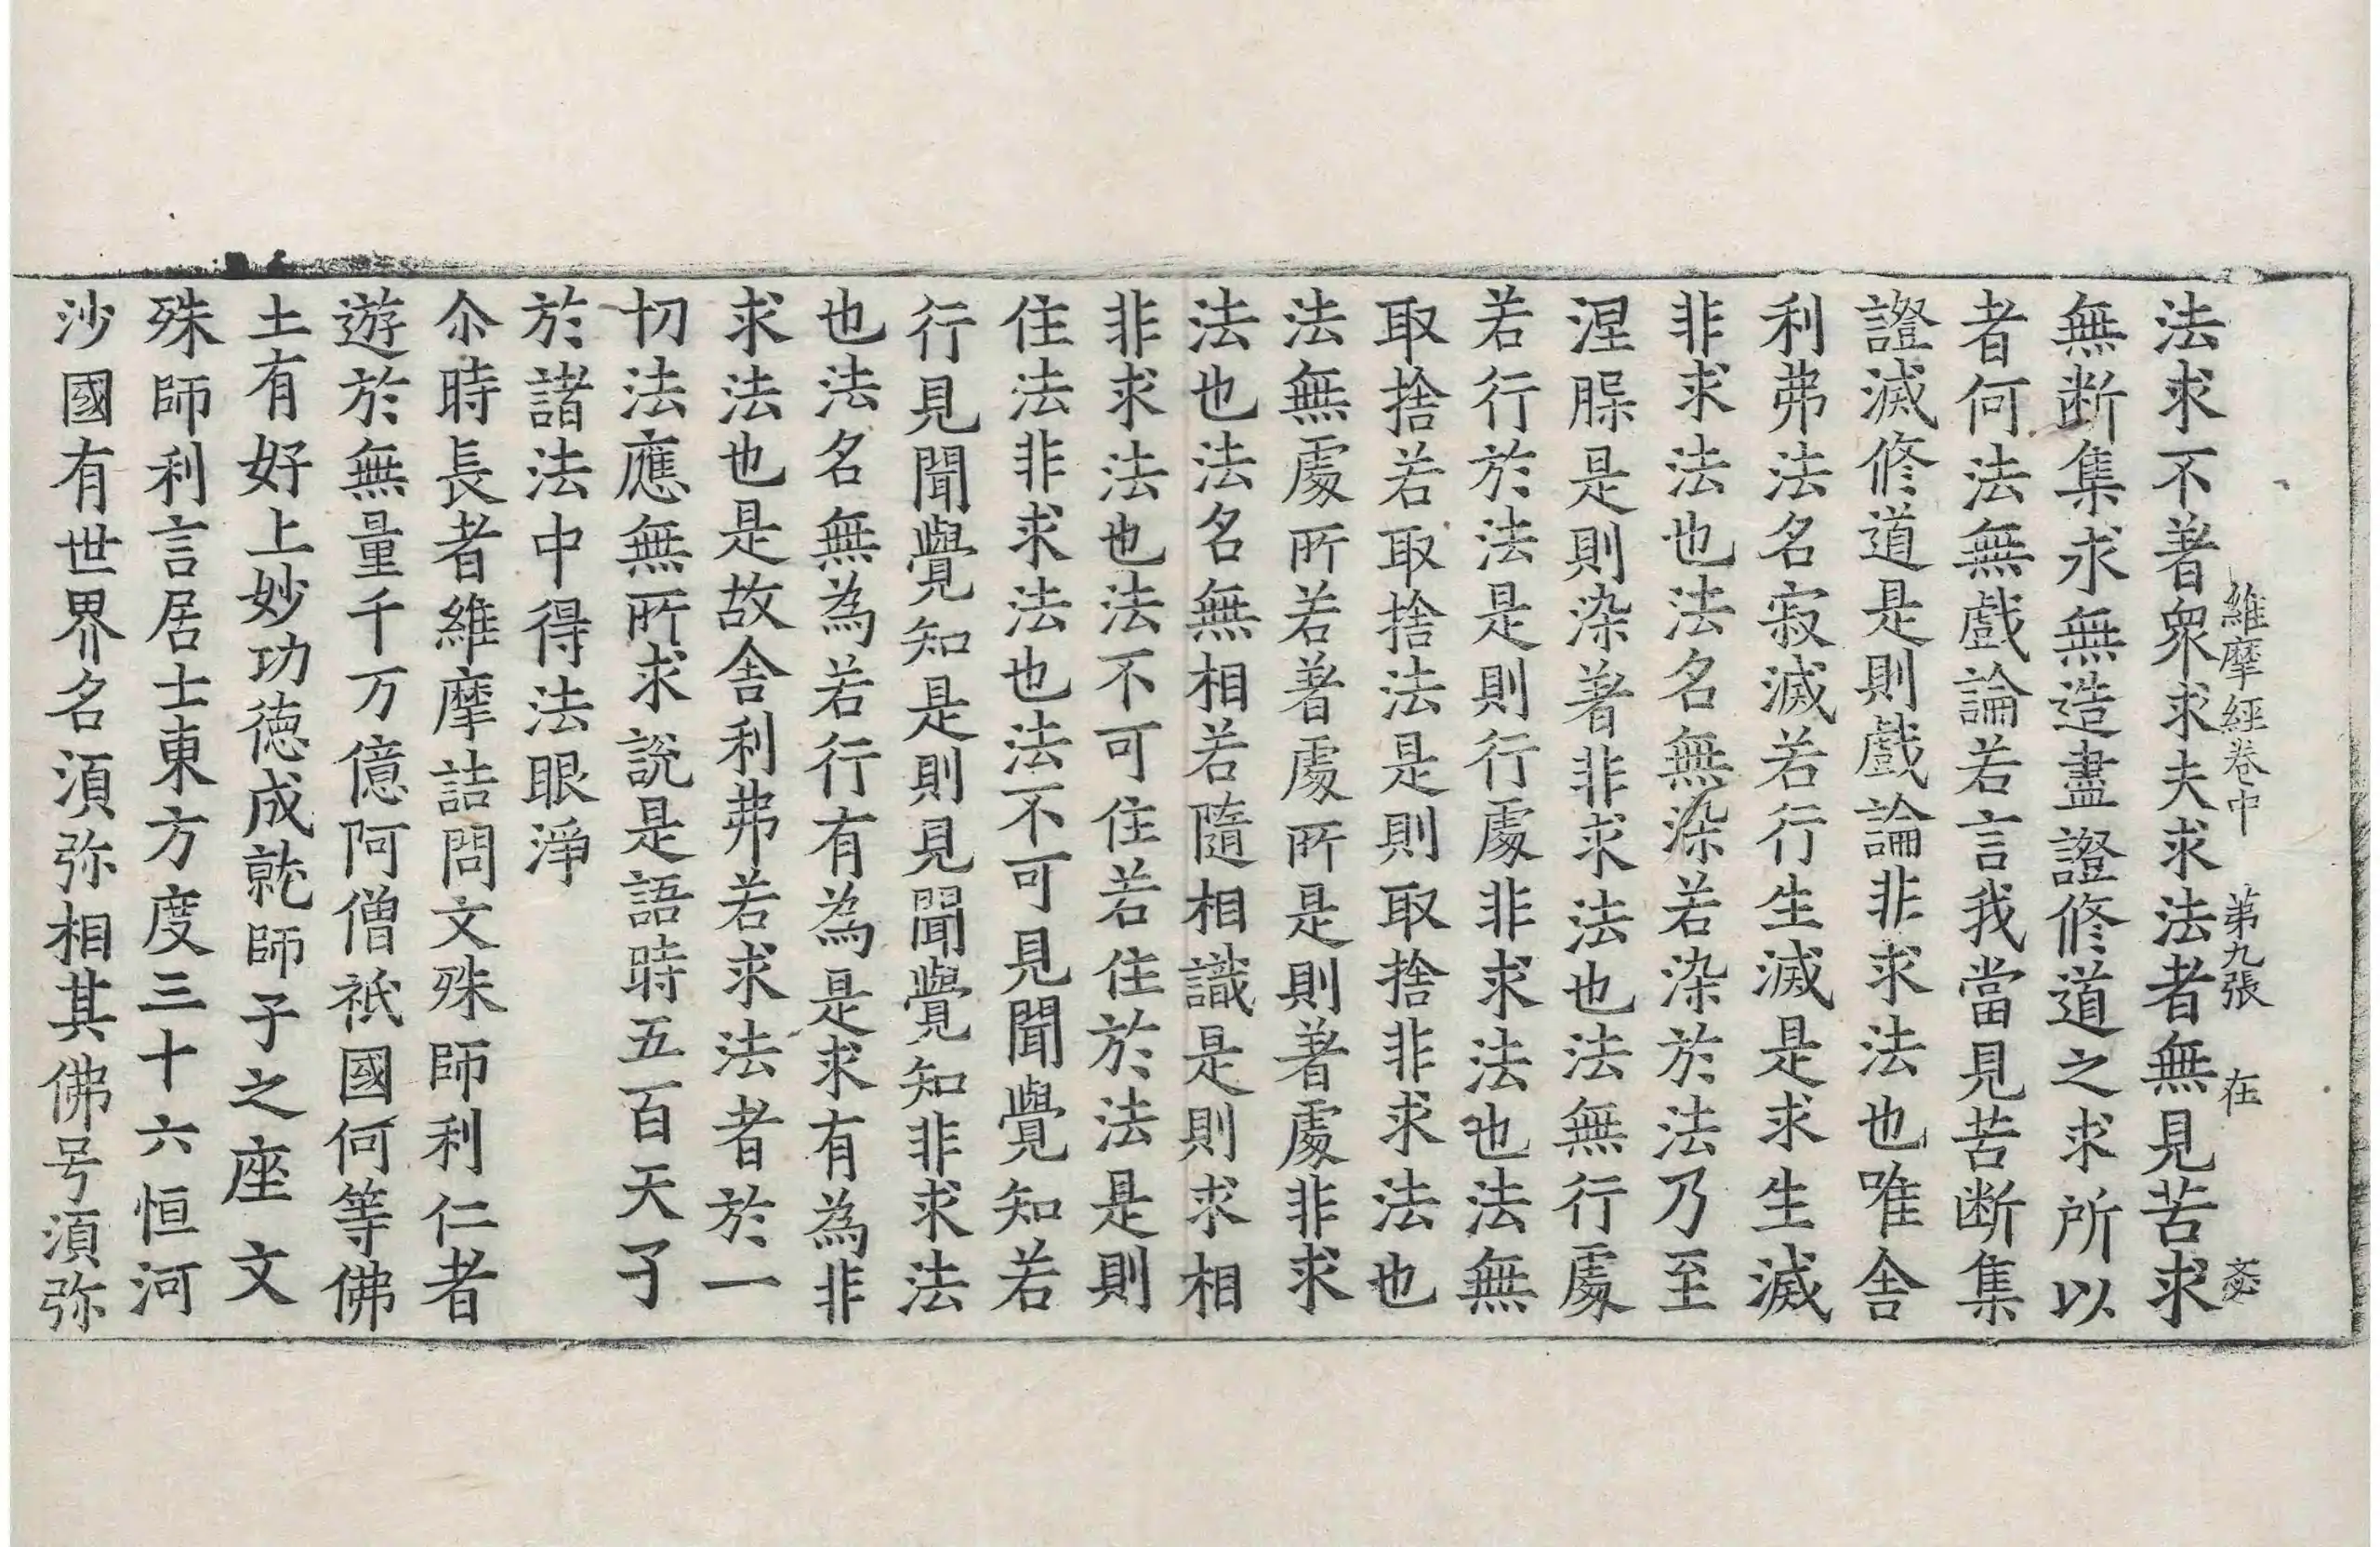 維摩經卷中 第九張 在
法求不著衆求夫求法者無見苦求
無断集求無造盡證修道之求所以
者何法無戲論若言我當見苦断集
證滅修道是則戲論非求法也唯舎
利弗法名寂滅若行生滅是求生滅
非求法也法名無染若染於法乃至
涅槃是則染著非求法也法無行處
若行於法是則行處非求法也法無
取捨若取捨法是則取捨非求法也
法無處所若著處所是則著處非求
法也法名無相若隨相識是則求相
非求法也法不可住若住於法是則
住法非求法也法不可見聞覺知若
行見聞覺知是則見聞覺知非求法
也法名無為若行有為是求有為非
求法也是故舎利弗若求法者於一
切法應無所求說是語時五百天子
於諸法中得法眼淨
尒時長者維摩詰問文殊師利仁者
遊於無量千万億阿僧祇國何等佛
土有好上妙功德成就師子之座文
殊師利言居士東方度三十六恒河
沙國有世界名湏弥相其佛号湏弥